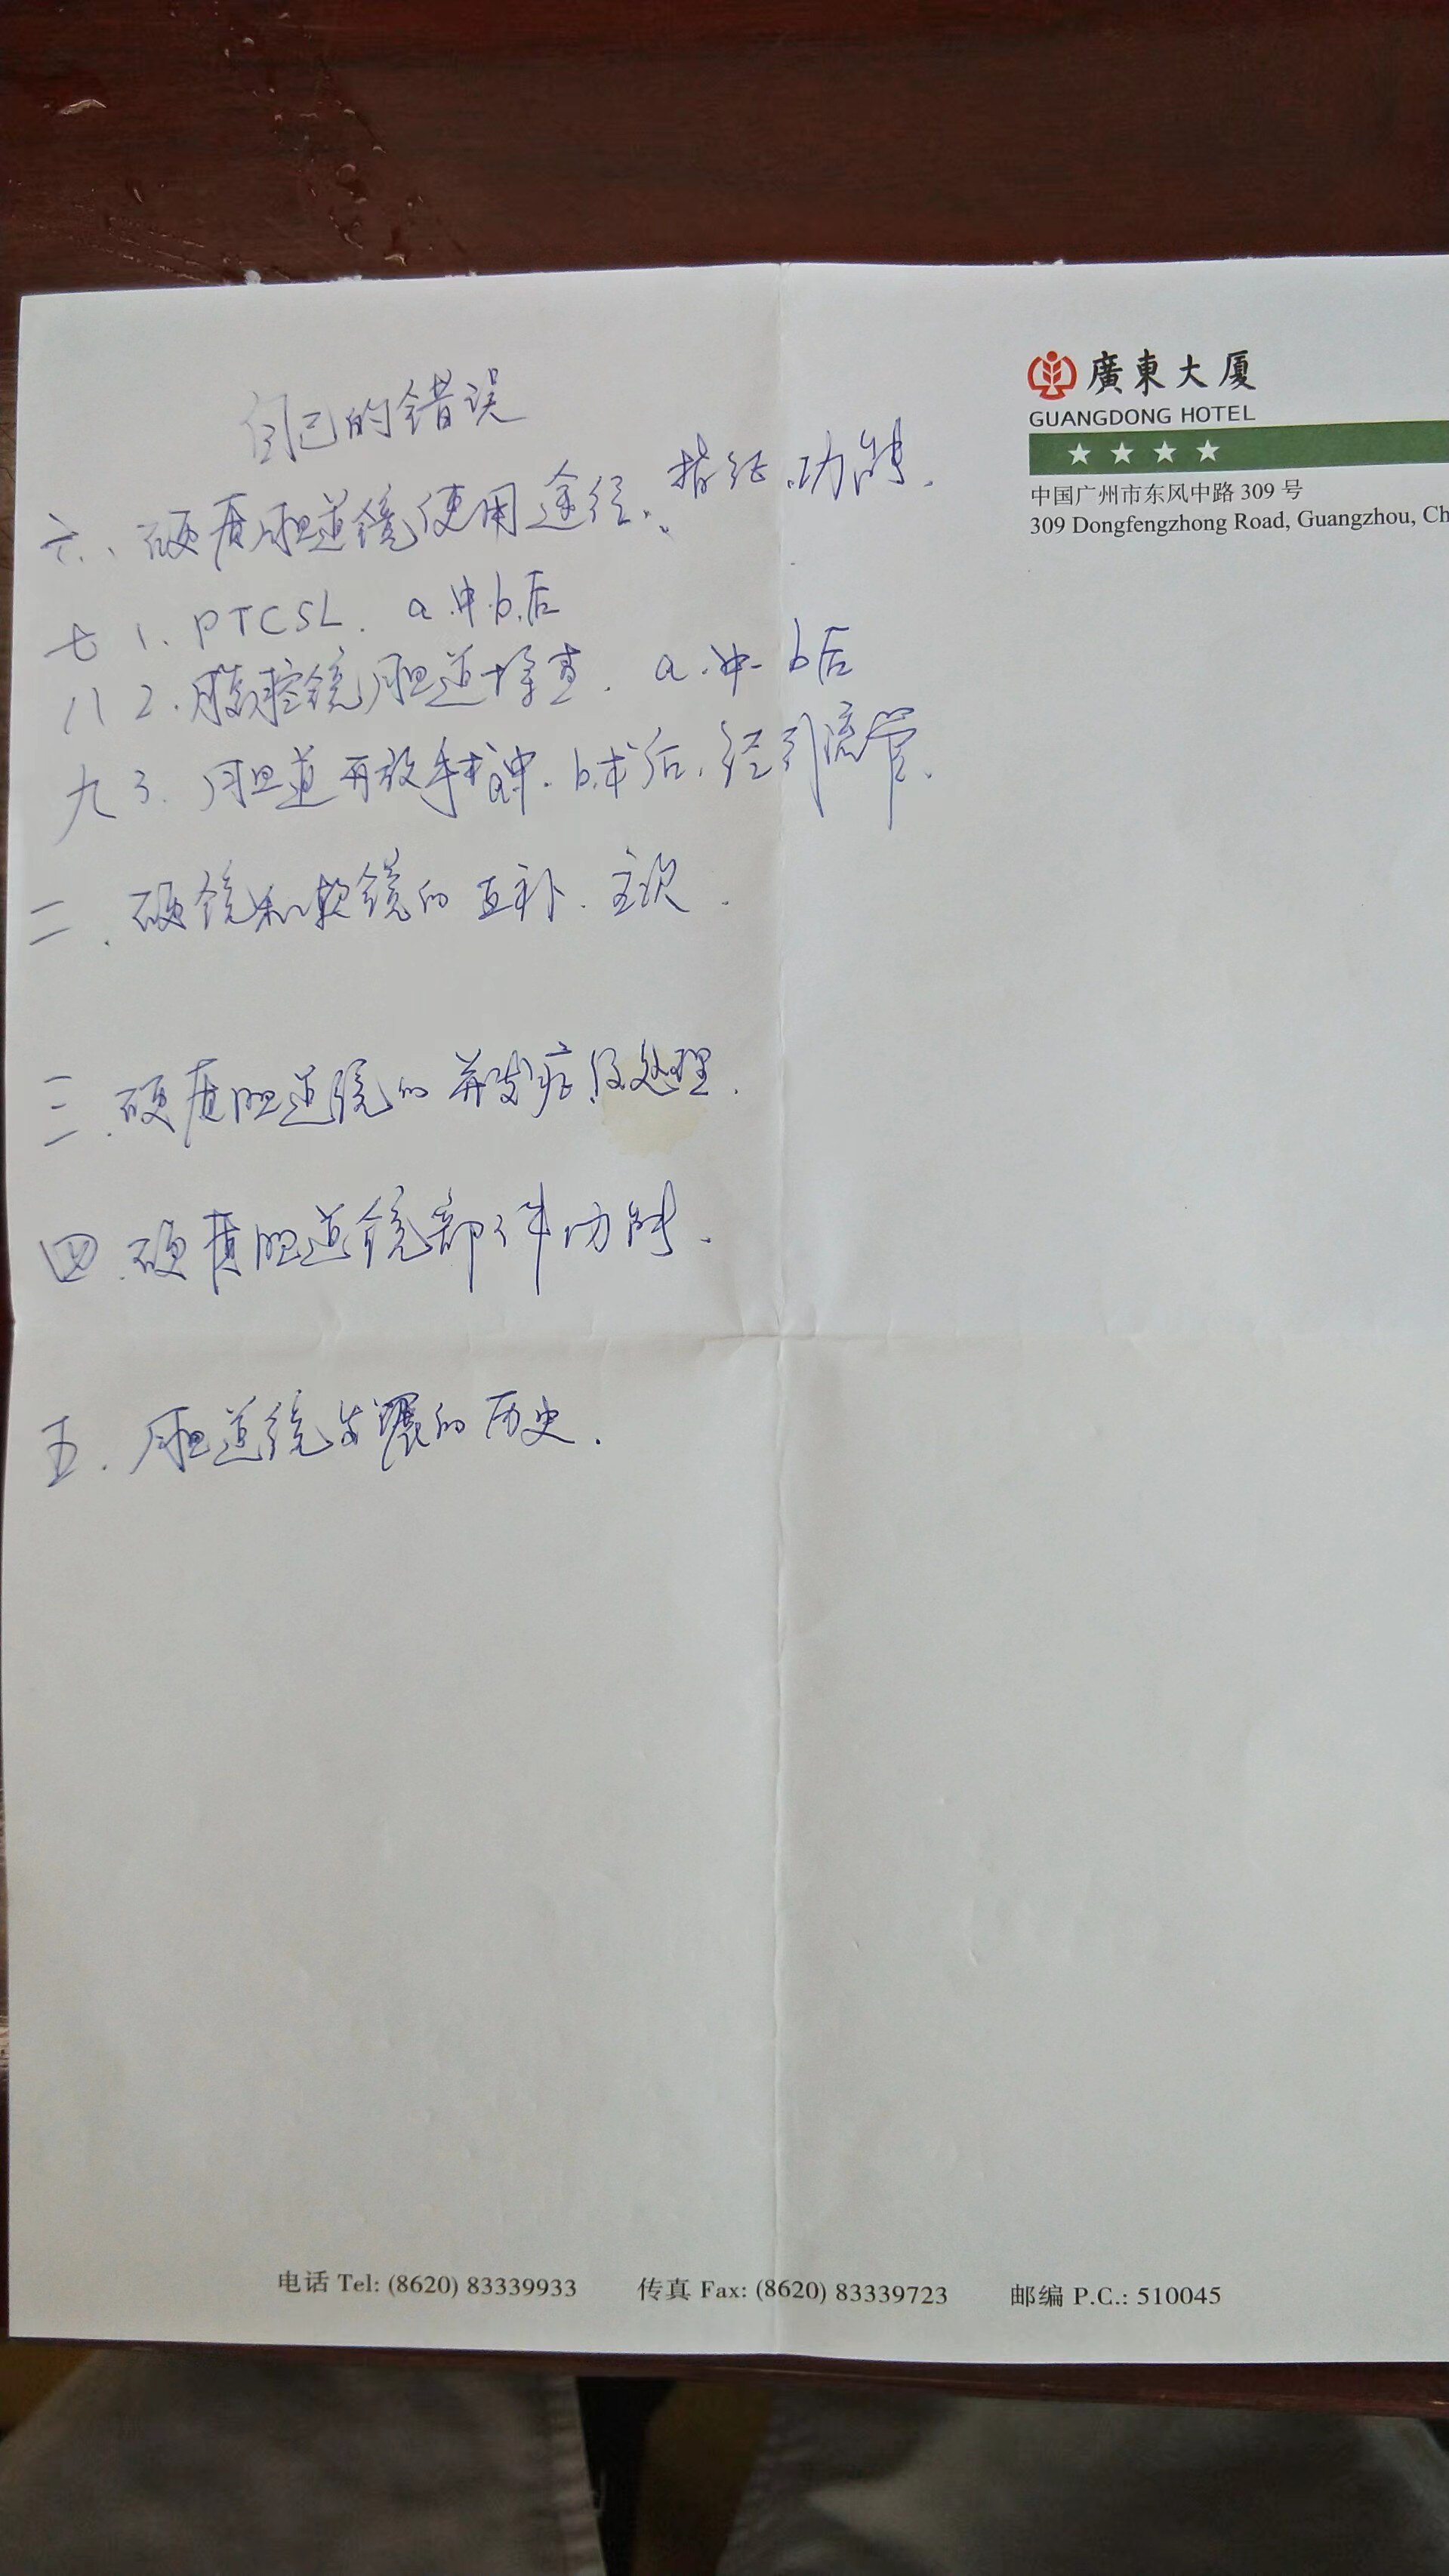 廣東大厦
GUANGDONG HOTEL
中国广州市东风中路 309 号
309 Dongfengzhong Road, Guangzhou, Ch
自己的错误
六、硬质胆道镜使用途径、指征、功能.
七 1. PTCSL. a.中.b.后
八 2. 腹腔镜胆道探查. a.中. b后
九 3. 胆道开放手术a中. b.术后. 经引流管.
二. 硬镜和软镜的互补. 主次.
三. 硬质胆道镜的并发症及处理.
四. 硬质胆道镜部件功能.
五. 胆道镜发展的历史.
电话 Tel: (8620) 83339933 传真 Fax: (8620) 83339723 邮编 P.C.: 510045